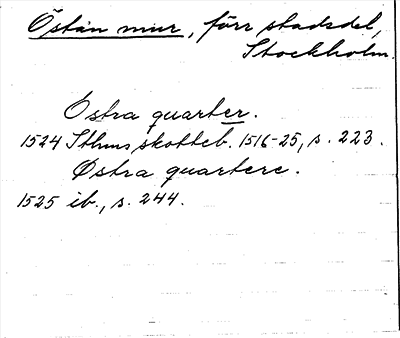 Östan mur, förr stadsdel,
Stockholm.
Østra quarter.
1524 Sthms skotteb. 1516-25, s. 223.
Østra quartere.
1525 ib., s. 244.